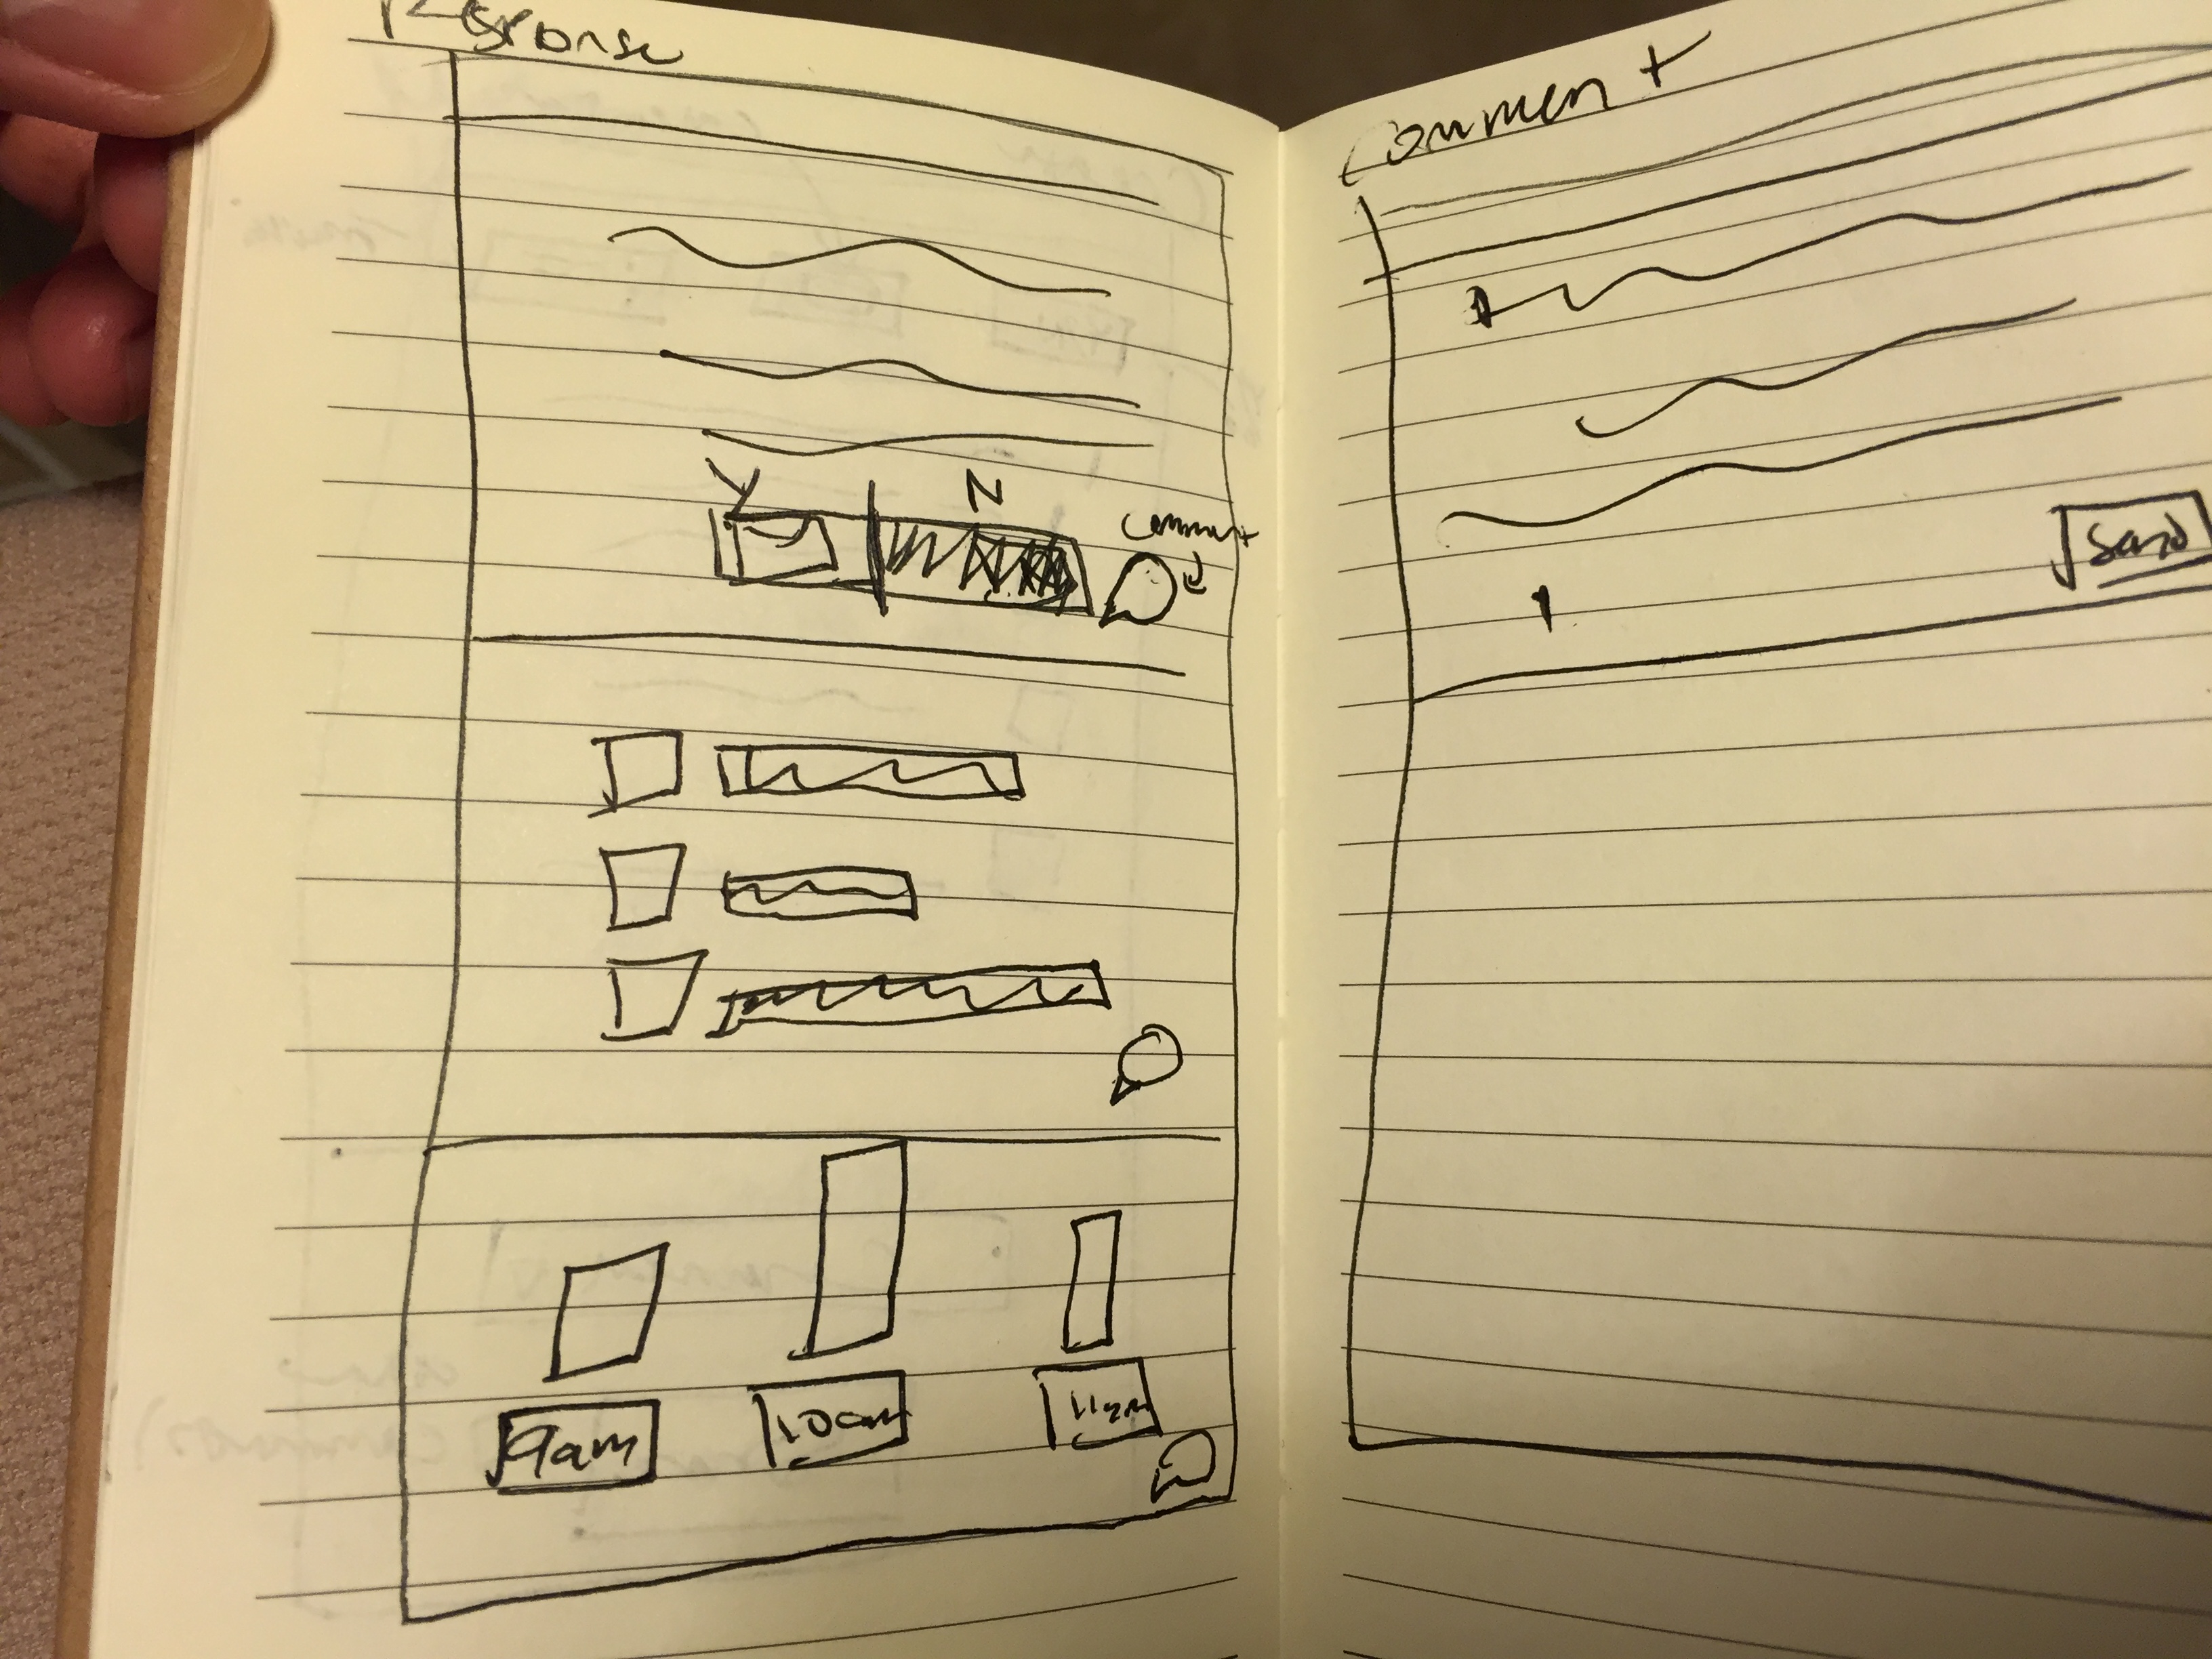 Response
Y N
Comment
9am 10am 11am
Comment
Send